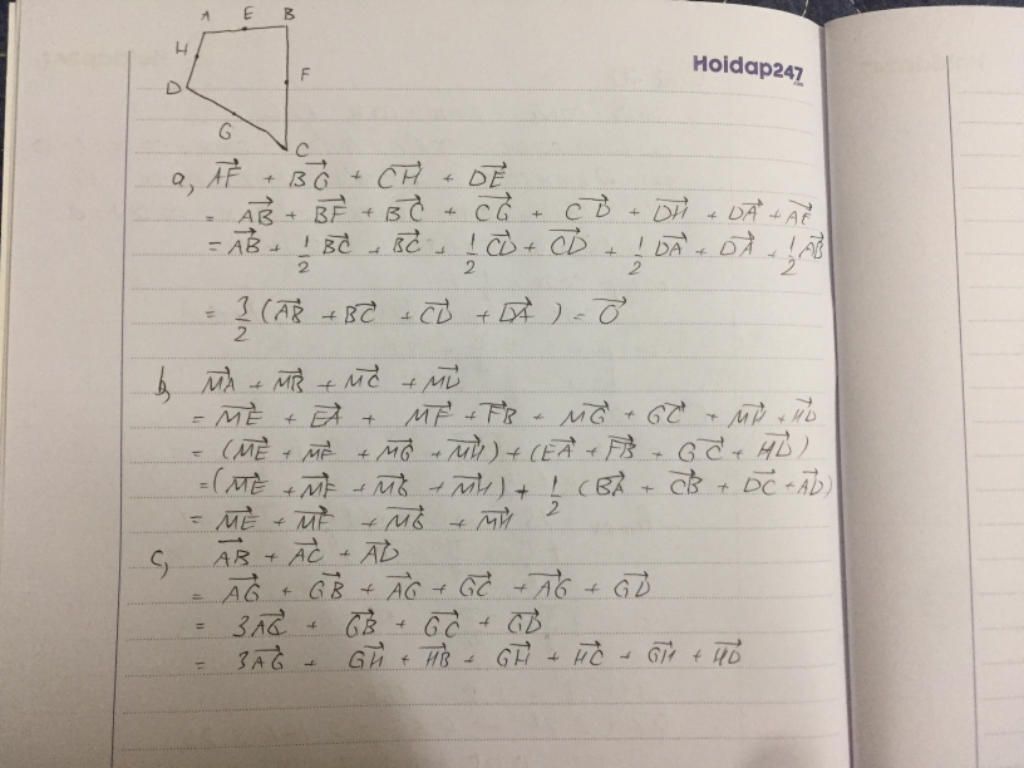 A E B
H
Hoidap247
.com
D F
G
C
a, $\overrightarrow{AF} + \overrightarrow{BG} + \overrightarrow{CH} + \overrightarrow{DE}$
$= \overrightarrow{AB} + \overrightarrow{BF} + \overrightarrow{BC} + \overrightarrow{CG} + \overrightarrow{CD} + \overrightarrow{DH} + \overrightarrow{DA} + \overrightarrow{AE}$
$= \overrightarrow{AB} + \frac{1}{2}\overrightarrow{BC} + \overrightarrow{BC} + \frac{1}{2}\overrightarrow{CD} + \overrightarrow{CD} + \frac{1}{2}\overrightarrow{DA} + \overrightarrow{DA} + \frac{1}{2}\overrightarrow{AB}$
$= \frac{3}{2}(\overrightarrow{AB} + \overrightarrow{BC} + \overrightarrow{CD} + \overrightarrow{DA}) = \overrightarrow{O}$
b, $\overrightarrow{MA} + \overrightarrow{MB} + \overrightarrow{MC} + \overrightarrow{MD}$
$= \overrightarrow{ME} + \overrightarrow{EA} + \overrightarrow{MF} + \overrightarrow{FB} + \overrightarrow{MG} + \overrightarrow{GC} + \overrightarrow{MH} + \overrightarrow{HD}$
$= (\overrightarrow{ME} + \overrightarrow{MF} + \overrightarrow{MG} + \overrightarrow{MH}) + (\overrightarrow{EA} + \overrightarrow{FB} + \overrightarrow{GC} + \overrightarrow{HD})$
$= (\overrightarrow{ME} + \overrightarrow{MF} + \overrightarrow{MG} + \overrightarrow{MH}) + \frac{1}{2}(\overrightarrow{BA} + \overrightarrow{CB} + \overrightarrow{DC} + \overrightarrow{AD})$
$= \overrightarrow{ME} + \overrightarrow{MF} + \overrightarrow{MG} + \overrightarrow{MH}$
c, $\overrightarrow{AB} + \overrightarrow{AC} + \overrightarrow{AD}$
$= \overrightarrow{AG} + \overrightarrow{GB} + \overrightarrow{AG} + \overrightarrow{GC} + \overrightarrow{AG} + \overrightarrow{GD}$
$= 3\overrightarrow{AG} + \overrightarrow{GB} + \overrightarrow{GC} + \overrightarrow{GD}$
$= 3\overrightarrow{AG} + \overrightarrow{GH} + \overrightarrow{HB} + \overrightarrow{GH} + \overrightarrow{HC} + \overrightarrow{GH} + \overrightarrow{HD}$